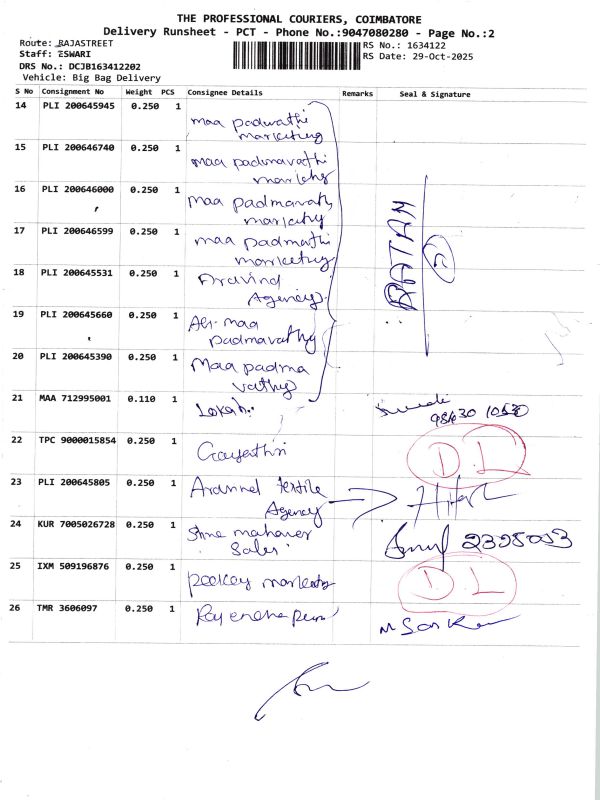 THE PROFESSIONAL COURIERS, COIMBATORE
Delivery Runsheet - PCT - Phone No.:9047080280 - Page No.:2
Route: RAJASTREET
RS No.: 1634122
Staff: ESWARI
RS Date: 29-Oct-2025
DRS No.: DCJB163412202
Vehicle: Big Bag Delivery
S No Consignment No Weight PCS Consignee Details Remarks Seal & Signature
14 PLI 200645945 0.250 1 maa padwathi
marketing
15 PLI 200646740 0.250 1 maa padmavathi
16 PLI 200646000 0.250 1 maa padmavath
17 PLI 200646599 0.250 1 maa padmathi
marketing
RATAN
18 PLI 200645531 0.250 1 Aravind
Agency
19 PLI 200645660 0.250 1 maa
padmavathy
20 PLI 200645390 0.250 1 Maa padma
vathy
21 MAA 712995001 0.110 1
22 TPC 9000015854 0.250 1 Gayathri
D.L
23 PLI 200645805 0.250 1 textile
Agency
24 KUR 7005026728 0.250 1
Sales
2395053
25 IXM 509196876 0.250 1
D L
26 TMR 3606097 0.250 1